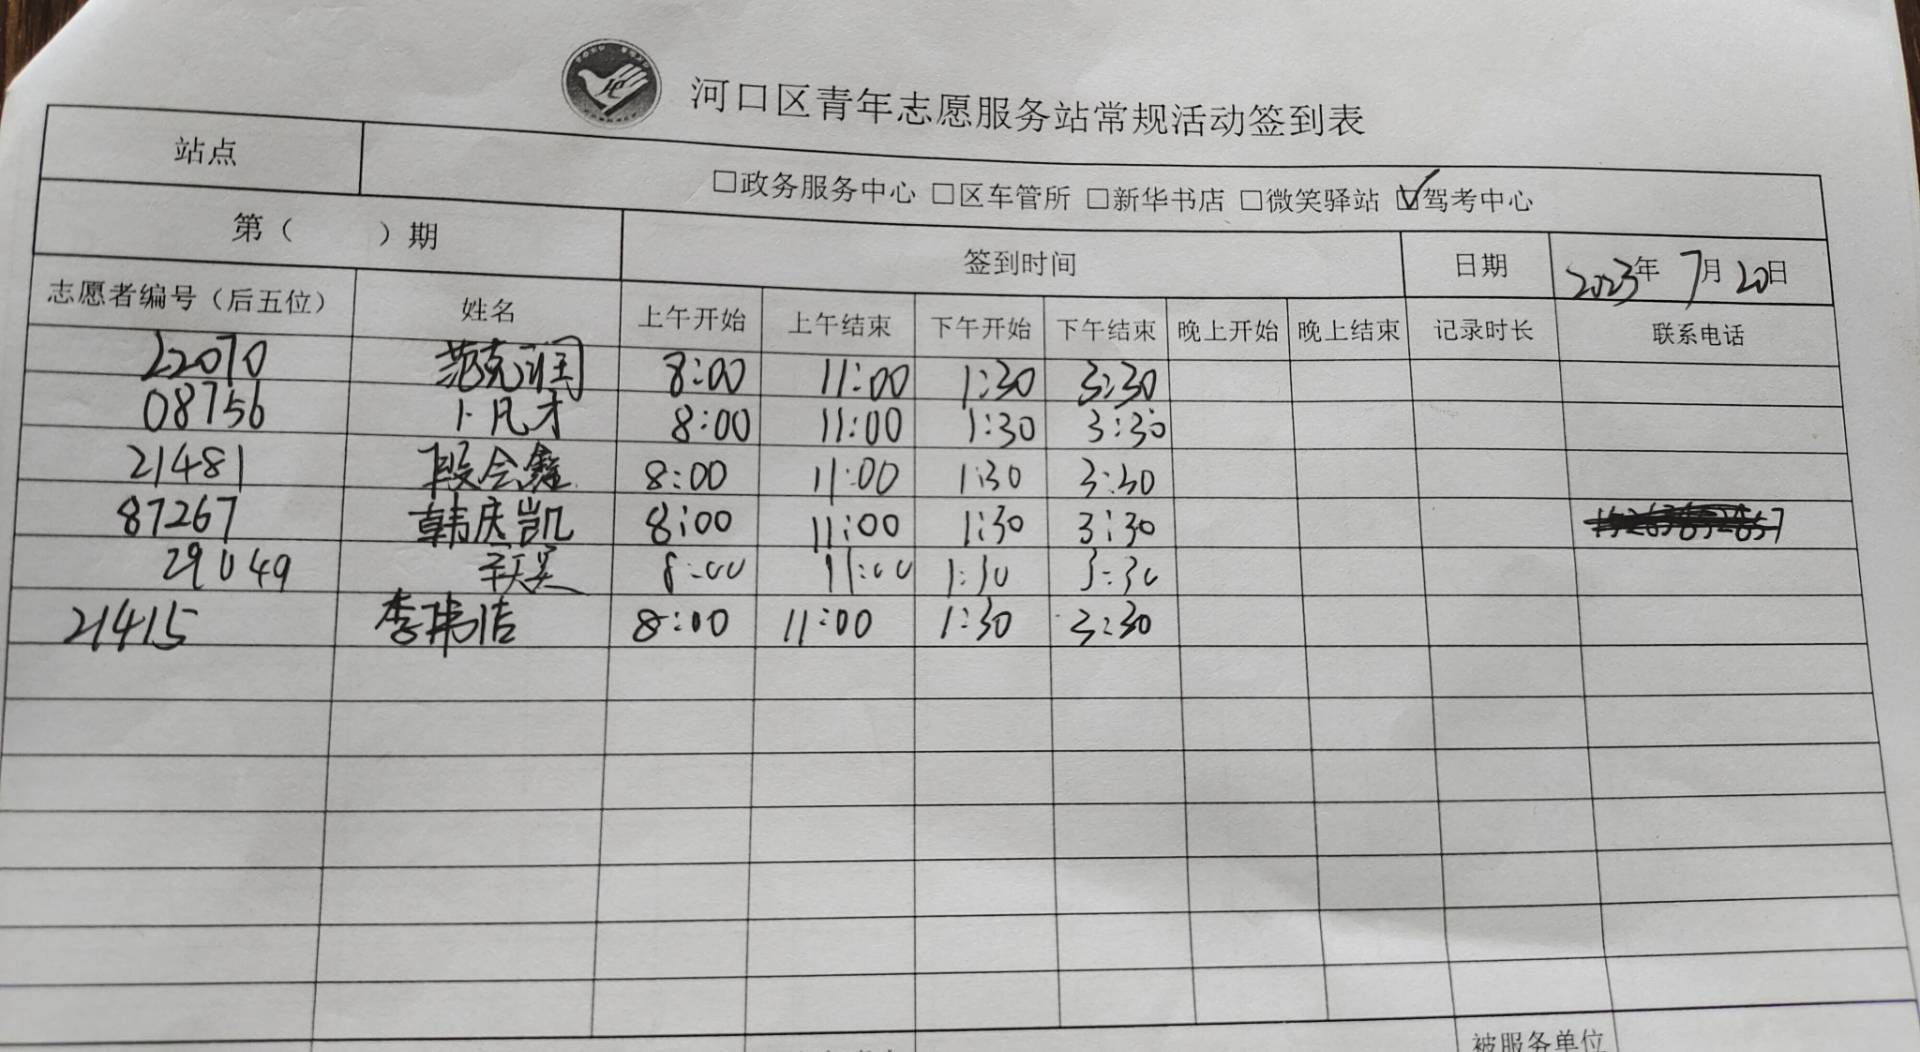 河口区青年志愿服务站常规活动签到表
站点 □政务服务中心 □区车管所 □新华书店 □微笑驿站 ☑驾考中心
第（ ）期 签到时间 日期 2023年7月20日
志愿者编号（后五位） 姓名 上午开始 上午结束 下午开始 下午结束 晚上开始 晚上结束 记录时长 联系电话
22070 范克润 8:00 11:00 1:30 3:30
08756 卜凡才 8:00 11:00 1:30 3:30
21481 段会鑫 8:00 11:00 1:30 3:30
87267 韩庆凯 8:00 11:00 1:30 3:30
29049 8:00 11:00 1:30 3:30
21415 李玮洁 8:00 11:00 1:30 3:30
被服务单位